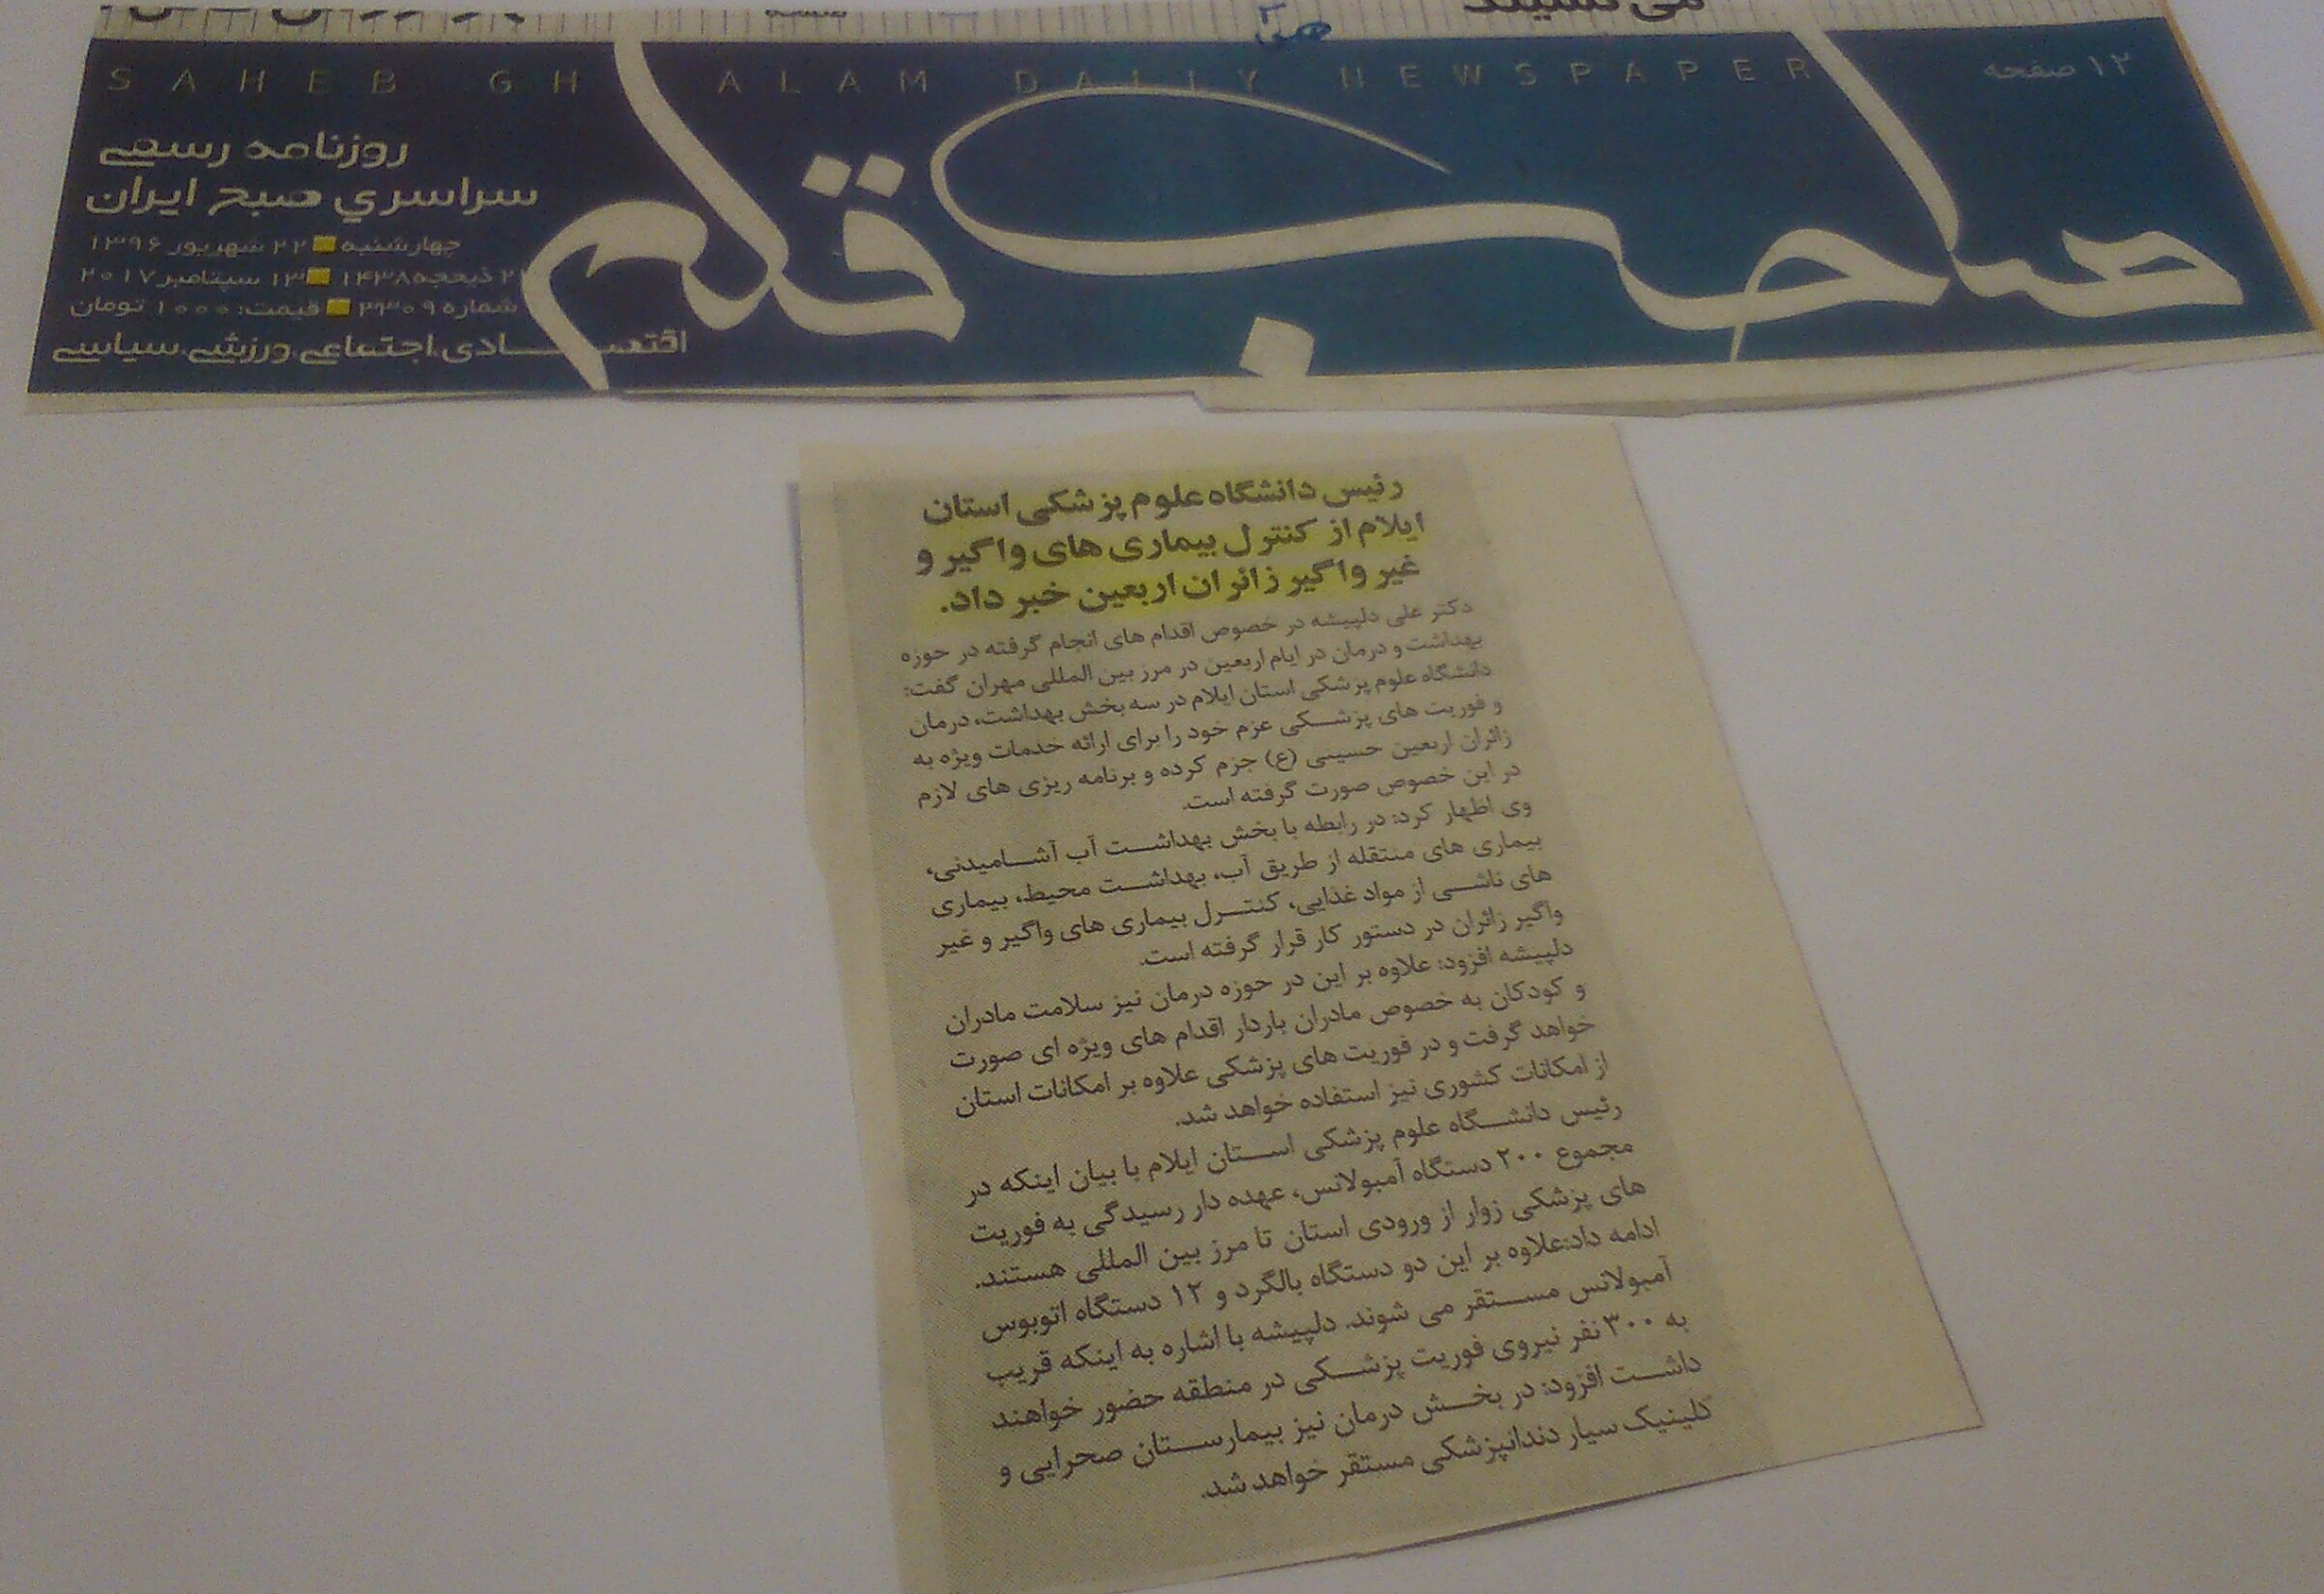 می نشیند
SAHEB GHALAM DAILY NEWSPAPER
۱۲ صفحه
صاحب قلم
روزنامه رسمی
سراسري صبح ایران
چهارشنبه ۲۲ شهریور ۱۳۹۶
ذیحجه ۱۴۳۸ ۱۳ سپتامبر ۲۰۱۷
شماره ۲۳۰۹ قیمت: ۱۰۰۰ تومان
اقتصـــادی.اجتماعی.ورزشی.سیاسی
رئیس دانشگاه علوم پزشکی استان
ایلام از کنترل بیماری های واگیر و
غیر واگیر زائران اربعین خبر داد.
دکتر علی دلپیشه در خصوص اقدام های انجام گرفته در حوزه
بهداشت و درمان در ایام اربعین در مرز بین المللی مهران گفت:
دانشگاه علوم پزشکی استان ایلام در سه بخش بهداشت، درمان
و فوریت های پزشـــکی عزم خود را برای ارائه خدمات ویژه به
زائران اربعین حسینی (ع) جزم کرده و برنامه ریزی های لازم
در این خصوص صورت گرفته است.
وی اظهار کرد: در رابطه با بخش بهداشـــت آب آشـــامیدنی،
بیماری های منتقله از طریق آب، بهداشـــت محیط، بیماری
های ناشـــی از مواد غذایی، کنتـــرل بیماری های واگیر و غیر
واگیر زائران در دستور کار قرار گرفته است.
دلپیشه افزود: علاوه بر این در حوزه درمان نیز سلامت مادران
و کودکان به خصوص مادران باردار اقدام های ویژه ای صورت
خواهد گرفت و در فوریت های پزشکی علاوه بر امکانات استان
از امکانات کشوری نیز استفاده خواهد شد.
رئیس دانشـــگاه علوم پزشکی اســـتان ایلام با بیان اینکه در
مجموع ۲۰۰ دستگاه آمبولانس، عهده دار رسیدگی به فوریت
های پزشکی زوار از ورودی استان تا مرز بین المللی هستند.
ادامه داد:علاوه بر این دو دستگاه بالگرد و ۱۲ دستگاه اتوبوس
آمبولانس مســـتقر می شوند. دلپیشه با اشاره به اینکه قریب
به ۳۰۰ نفر نیروی فوریت پزشـــکی در منطقه حضور خواهند
داشـــت افزود: در بخـــش درمان نیز بیمارســـتان صحرایی و
کلینیک سیار دندانپزشکی مستقر خواهد شد.